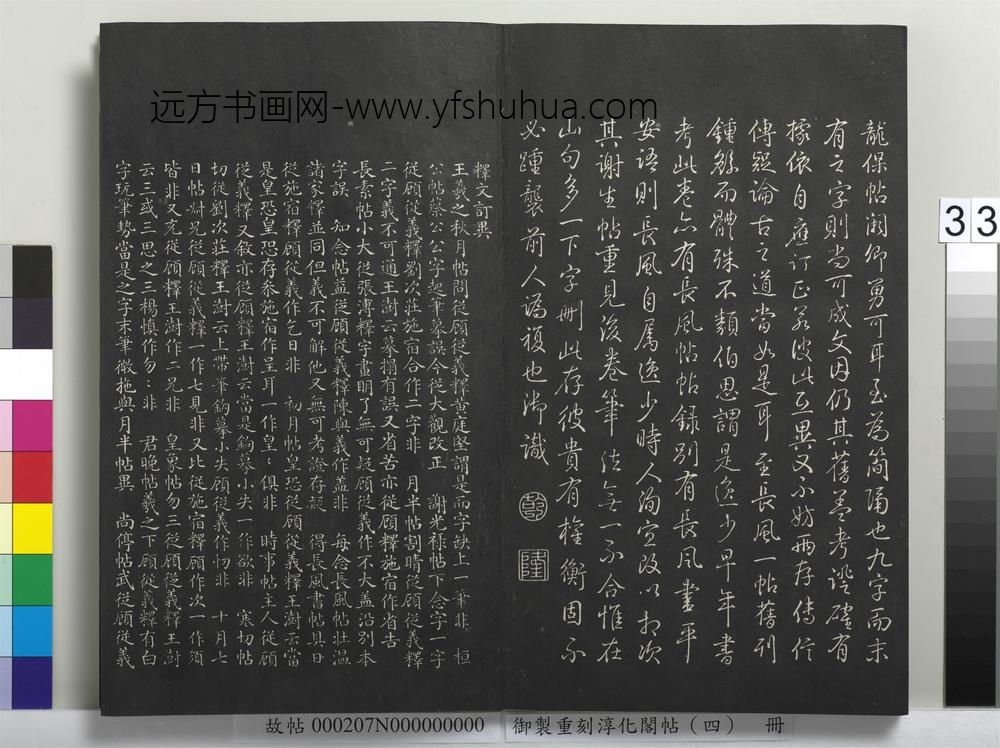 远方书画网-www.yfshuhua.com
龍保帖闕卿勇可耳至為簡陋也九字而末
有之字則尚可成文因仍其舊若考證確有
據依自應訂正若彼此互異又不妨兩存傳信
傳疑論古之道當如是耳至長風一帖舊刊
鍾繇而體殊不類伯思謂是逸少早年書
考此卷亦有長風帖帖錄別有長風書平
安語則長風自屬逸少時人詢宜改以相次
其謝生帖重見後卷筆法無一不合惟在
山句多一下字刪此存彼貴有權衡固不
必踵襲前人譌複也御識
乾
隆
釋文訂異
王羲之秋月帖問從顧從義釋黃庭堅謂是而字缺上一筆非　桓
公帖蔡公公字起筆摹誤今從大觀改正　謝光祿帖下念字一字
從顧從義釋劉次莊施宿合作二字非　月半帖割晴從顧從義釋
二字義不可通王澍云摹搨有誤又省苦亦從顧釋施宿作省告
長素帖小大從張溥釋字畫明了無可疑顧從義作不大蓋沿別本
字誤　知念帖益從顧從義釋陳與義作盖非　每念長風帖壯溫
諸家釋並同但義不可解他又無可考證存疑　得長風書帖具日
從施宿釋顧從義作乞日非　初月帖皇恐從顧從義釋王澍云當
是皇恐皇恐存叅施宿作呈耳一作皇：俱非　時事帖主人從顧
從義釋又敘亦從顧釋王澍云當是鉤摹小失一作欲非　寒切帖
切從劉次莊釋王澍云上帶筆鉤摹小失顧從義作忉非　十月七
日帖尌兄從顧從義釋一作七見非又比從施宿釋顧作次一作須
皆非又尤從顧釋王澍作二兄非　皇象帖勿三從顧從義釋王澍
云三或三思之三楊慎作勿：非　君晚帖羲之下顧從義釋有白
字玩筆勢當是之字末筆微拖與月半帖異　尚停帖武從顧從義
故帖 000207N000000000　御製重刻淳化閣帖（四）　冊
33